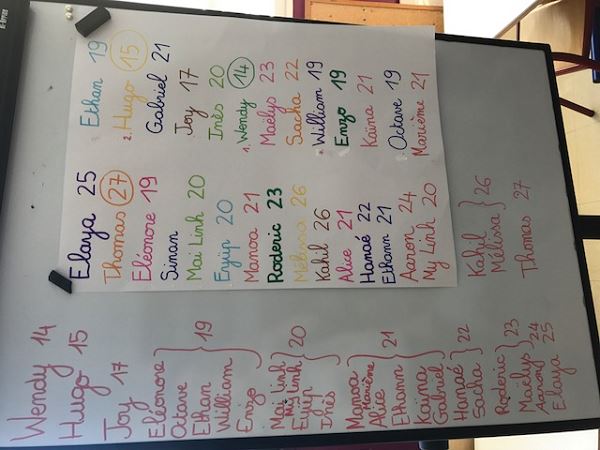 Elaya 25
Thomas 27
Eléonore 19
Sinan
Mai Linh 20
Eyüp 20
Manoa 21
Roderic 23
Mélissa 26
Kahil 26
Alice 21
Hanaé 22
Ethann 21
Aaron 24
My Linh 20
Ethan 19
2. Hugo 15
Gabriel 21
Joy 17
Inès 20
1. Wendy 14
Maëlys 23
Sacha 22
William 19
Enzo 19
Kaïna 21
Octave 19
Marième 21
Wendy 14
Hugo 15
Joy 17
Eléonore
Octave
Ethan } 19
William
Enzo
Mai Linh
My Linh } 20
Eyüp
Inès
Manoa
Marième
Alice
Ethann } 21
Kaïna
Gabriel
Hanaé } 22
Sacha
Roderic } 23
Maëlys
Aaron 24
Elaya 25
Kahil } 26
Mélissa
Thomas 27